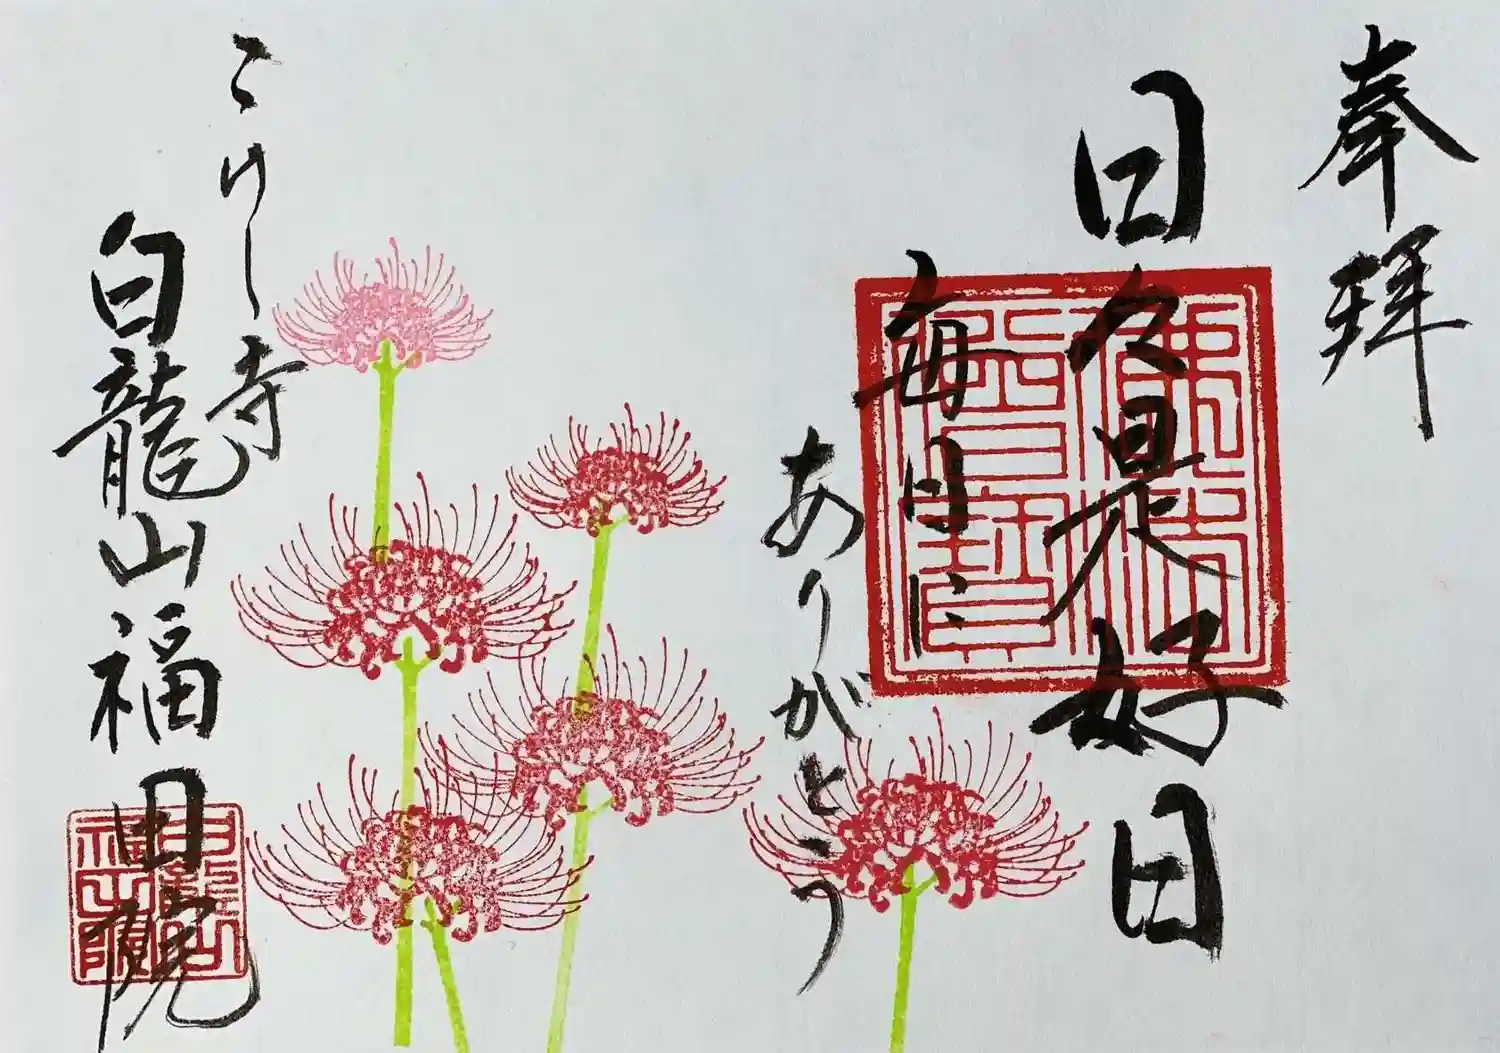 奉拝
日々是好日
毎日に
ありがとう
こけし寺
白龍山福田院
佛法僧寶